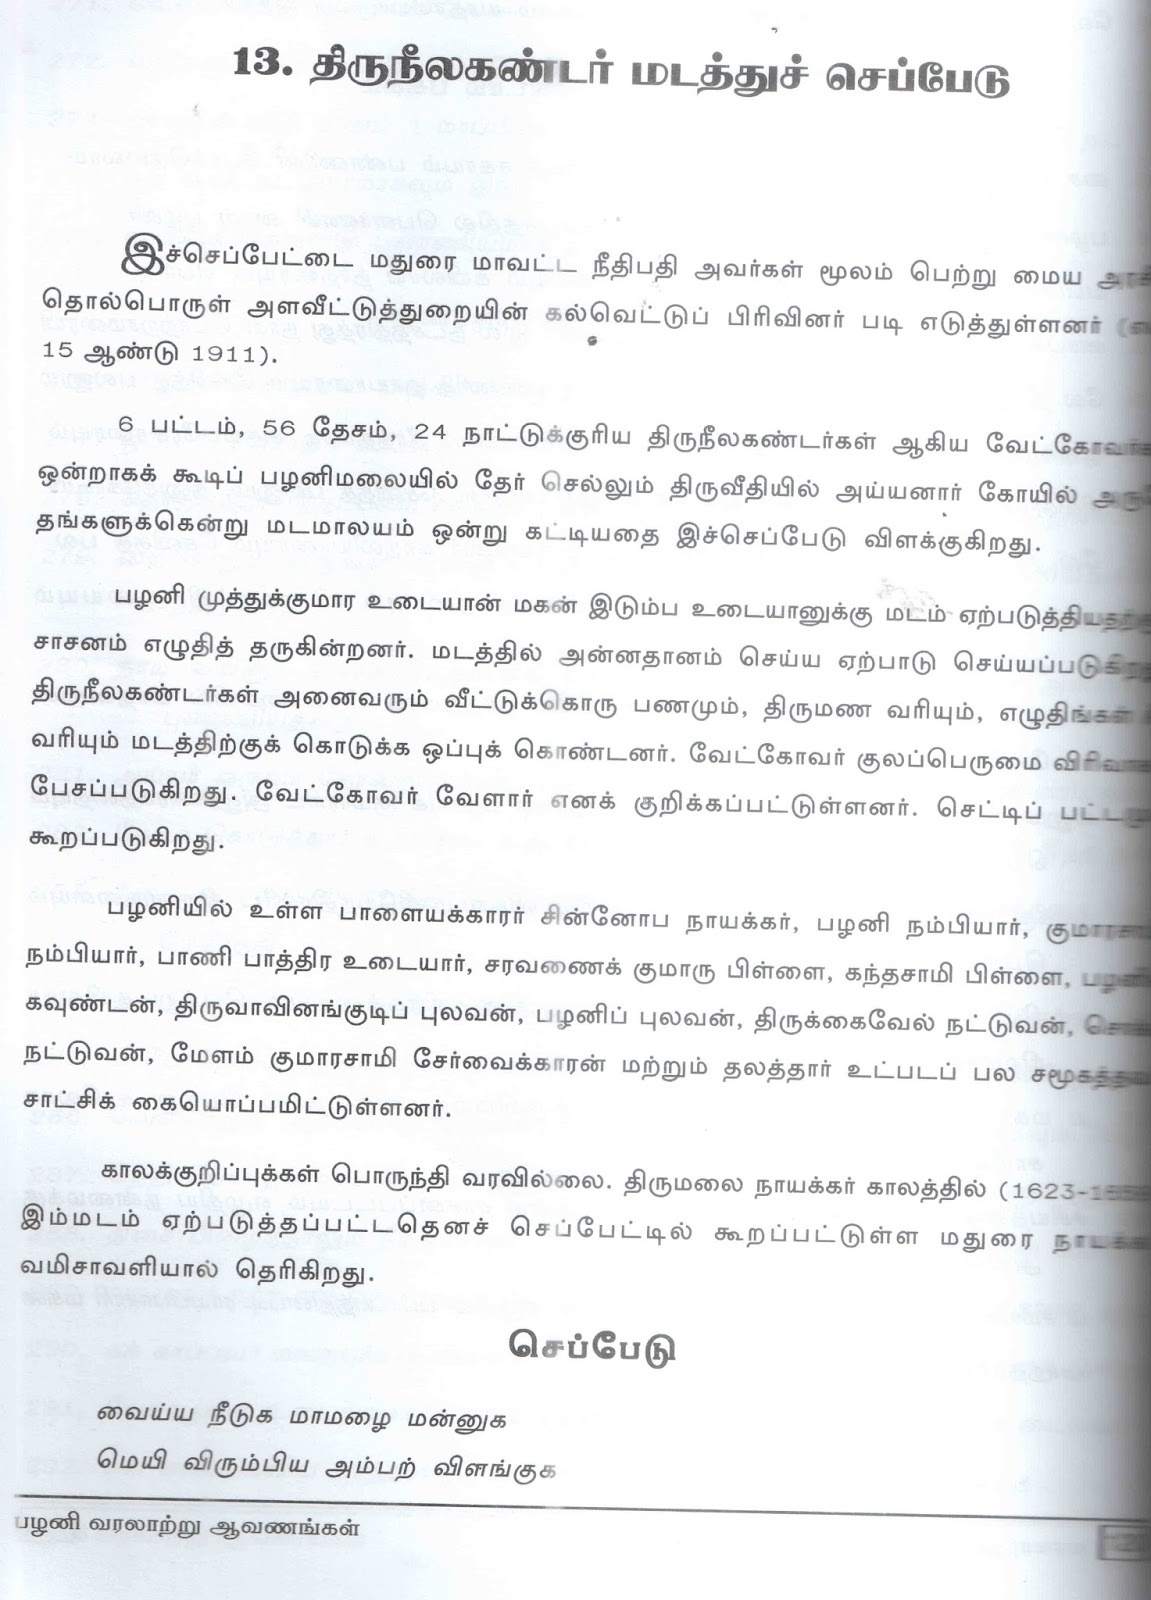 13. திருநீலகண்டர் மடத்துச் செப்பேடு
இச்செப்பேட்டை மதுரை மாவட்ட நீதிபதி அவர்கள் மூலம் பெற்று மைய
தொல்பொருள் அளவீட்டுத்துறையின் கல்வெட்டுப் பிரிவினர் படி எடுத்துள்ளனர்
15 ஆண்டு 1911).
6 பட்டம், 56 தேசம், 24 நாட்டுக்குரிய திருநீலகண்டர்கள் ஆகிய
ஒன்றாகக் கூடிப் பழனிமலையில் தேர் செல்லும் திருவீதியில் அய்யனார் கோயில்
தங்களுக்கென்று மடமாலயம் ஒன்று கட்டியதை இச்செப்பேடு விளக்குகிறது.
பழனி முத்துக்குமார உடையான் மகன் இடும்ப உடையானுக்கு மடம்
சாசனம் எழுதித் தருகின்றனர். மடத்தில் அன்னதானம் செய்ய ஏற்பாடு
திருநீலகண்டர்கள் அனைவரும் வீட்டுக்கொரு பணமும், திருமண வரியும், எழுதிங்கள்
வரியும் மடத்திற்குக் கொடுக்க ஒப்புக் கொண்டனர். வேட்கோவர் குலப்பெருமை
பேசப்படுகிறது. வேட்கோவர் வேளார் எனக் குறிக்கப்பட்டுள்ளனர். செட்டிப்
கூறப்படுகிறது.
பழனியில் உள்ள பாளையக்காரர் சின்னோப நாயக்கர், பழனி நம்பியார்,
நம்பியார், பாணி பாத்திர உடையார், சரவணைக் குமாரு பிள்ளை, கந்தசாமி பிள்ளை,
கவுண்டன், திருவாவினங்குடிப் புலவன், பழனிப் புலவன், திருக்கைவேல் நட்டுவன்,
நட்டுவன், மேளம் குமாரசாமி சேர்வைக்காரன் மற்றும் தலத்தார் உட்படப் பல
சாட்சிக் கையொப்பமிட்டுள்ளனர்.
காலக்குறிப்புக்கள் பொருந்தி வரவில்லை. திருமலை நாயக்கர் காலத்தில்
இம்மடம் ஏற்படுத்தப்பட்டதெனச் செப்பேட்டில் கூறப்பட்டுள்ள மதுரை
வமிசாவளியால் தெரிகிறது.
செப்பேடு
வைய்ய நீடுக மாமழை மன்னுக
மெயி விரும்பிய அம்பற் விளங்குக
பழனி வரலாற்று ஆவணங்கள்